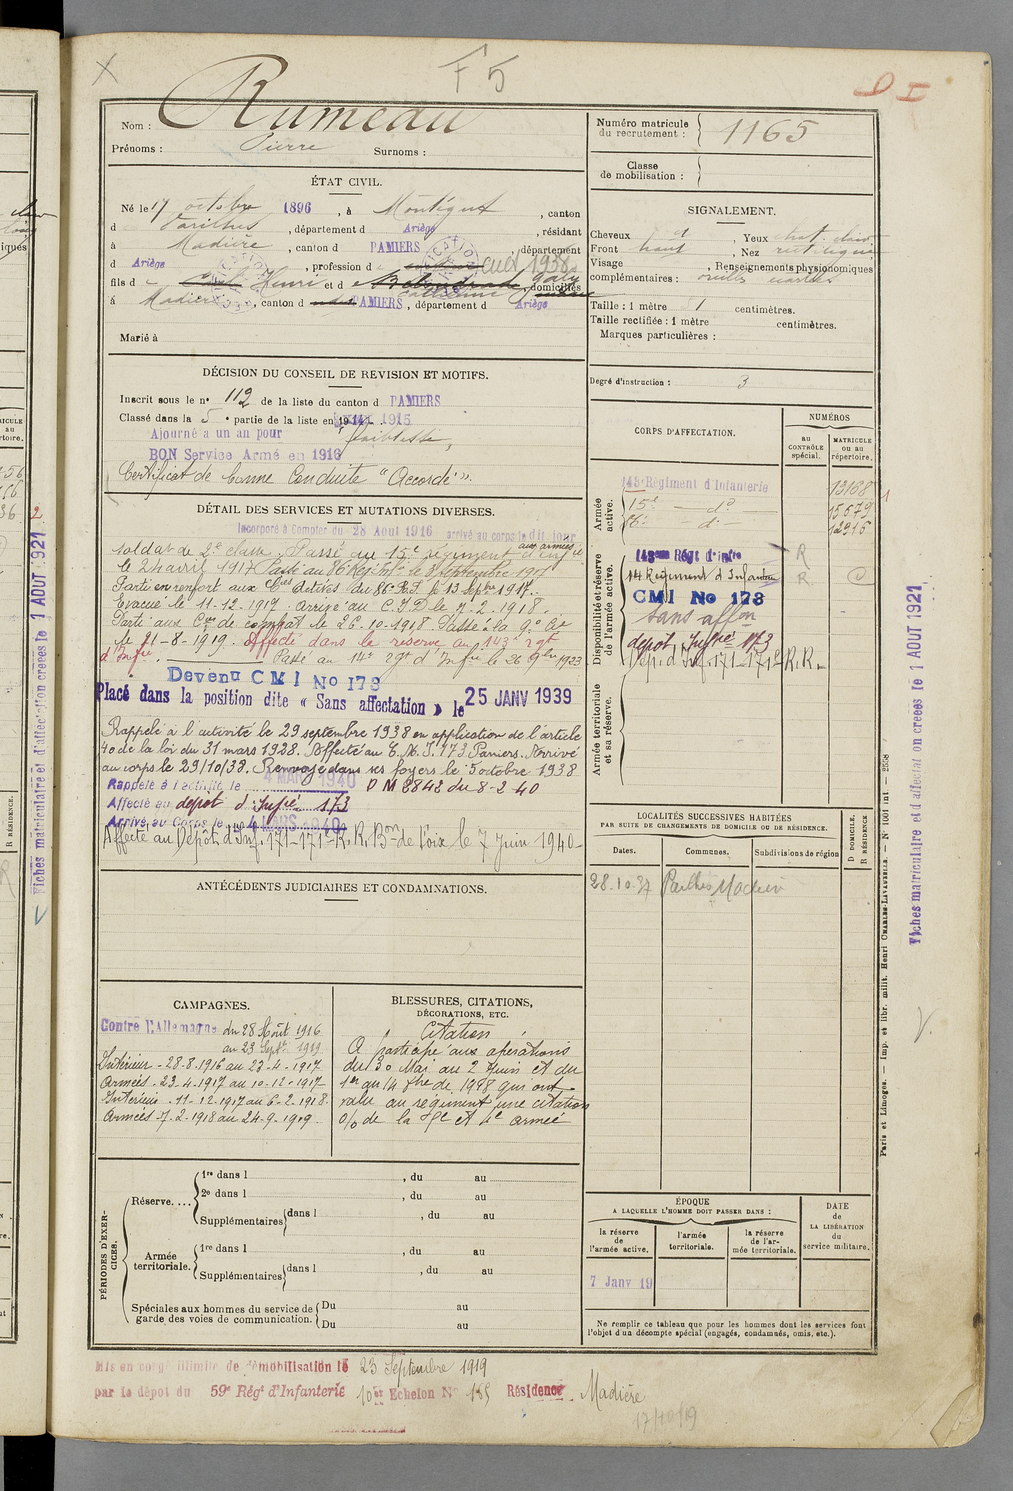 F5
Nom : Rumeau
Prénoms : Pierre Surnoms :
ÉTAT CIVIL.
Né le 17 octobre 1896, à Montégut, canton
d Varilhes, département d Ariège, résidant
à Madière, canton d PAMIERS, département
d Ariège, profession d
fils d Henri et d , domiciliés
à Madière, canton d PAMIERS, départem^t d Ariège
Marié à
DÉCISION DU CONSEIL DE REVISION ET MOTIFS.
Inscrit sous le n° 112 de la liste du canton d PAMIERS
Classé dans la 5e partie de la liste en 1915
Ajourné a un an pour faiblesse,
BON Service Armé en 1916
Certificat de bonne Conduite "Accordé".
DÉTAIL DES SERVICES ET MUTATIONS DIVERSES.
Incorporé à Compter du 28 Aout 1916 arrivé au corps le dit jour
soldat de 2e classe. Passé au 15e régiment d'Infie
aux armées
le 24 avril 1917 Passé au 86 Reg. Inf. le 8 septembre 1917
Parti en renfort aux Cies actives du 86e R.I. le 13 septbre 1917.
Evacué le 11-12-1917. arrivé au C.I.D. le 7-2-1918.
Parti aux Cies de combat le 26-10-1918 Passé à la 9e Cie
le 21-8-1919. Affecté dans la réserve au 143e rgt
d'Infie. Passé au 14e rgt d'Infie le 26 9bre 1923
Devenu CMI No 173
Placé dans la position dite « Sans affectation » le 25 JANV 1939
Rappelé à l'activité le 29 septembre 1938 en application de l'article
40 de la loi du 31 mars 1928. Affecté au C.M.I. 173 Pamiers. Arrivé
au corps le 29/10/38. Renvoyé dans ses foyers le 5 octobre 1938
Rappelé à l'activité le 4 MARS 1940 D M 8842 du 8-2-40
Affecté au dépot d'Infie 173
Arrivé au Corps le 4 MARS 1940
Affecté au Dépôt d'Inf. 171-171e R.R. Bon de Foix le 7 Juin 1940-
ANTÉCÉDENTS JUDICIAIRES ET CONDAMNATIONS.
CAMPAGNES.
Contre l'Allemagne du 28 Août 1916
au 23 Septe 1919
Intérieur - 28-8-1916 au 23-4-1917
Armées - 23-4-1917 au 10-12-1917
Intérieur - 11-12-1917 au 6-2-1918.
Armées - 7-2-1918 au 24-9-1919.
BLESSURES, CITATIONS,
DÉCORATIONS, ETC.
Citation
A participé aux opérations
du 30 Mai au 2 Juin et du
1er au 14 8bre de 1918 qui ont
valu au régiment une citation
o/o de la et 4e armée
PÉRIODES D'EXERCICES.
Réserve....
1re dans l , du au
2e dans l , du au
Supplémentaires dans l , du au
Armée territoriale.
1re dans l , du au
Supplémentaires dans l , du au
Spéciales aux hommes du service de garde des voies de communication.
Du au
Du au
Mis en congé illimité de démobilisation le 23 Septembre 1919
par le dépot du 59e Régt d'Infanterie 10er Echelon No 185 Résidence Madière
17/10/19
Numéro matricule
du recrutement : 1165
Classe
de mobilisation :
SIGNALEMENT.
Cheveux , Yeux chat. clair
Front haut, Nez rectiligne
Visage , Renseignements physionomiques
complémentaires : oreilles écartées
Taille : 1 mètre 51 centimètres.
Taille rectifiée : 1 mètre centimètres.
Marques particulières :
Degré d'instruction : 3
CORPS D'AFFECTATION.
NUMÉROS
AU CONTRÔLE spécial.
MATRICULE ou au répertoire.
Armée active.
143e Régiment d'Infanterie 13168
15e — do — 15579
86e — do — 12916
Disponibilité et réserve de l'armée active.
143eme Régt d'infie R
14 Régiment d'Infanterie R
CMI No 173
Sans affon
dépot Infie 173
Dép. d'Inf. 171-171e R.R.
Armée territoriale et sa réserve.
LOCALITÉS SUCCESSIVES HABITÉES
PAR SUITE DE CHANGEMENTS DE DOMICILE OU DE RÉSIDENCE.
Dates. Communes. Subdivisions de région D DOMICILE. R RÉSIDENCE.
28-10-37 Pailhès
ÉPOQUE
A LAQUELLE L'HOMME DOIT PASSER DANS :
la réserve de l'armée active.
l'armée territoriale.
la réserve de l'armée territoriale.
DATE de LA LIBÉRATION du service militaire.
7 Janv 19
Ne remplir ce tableau que pour les hommes dont les services font
l'objet d'un décompte spécial (engagés, condamnés, omis, etc.).
Paris et Limoges. — Imp. et libr. milit. Henri CHARLES-LAVAUZELLE. — N° 1001 int — 2558
Fiches matriculaire et d'affectation créées le 1 AOUT 1921
Fiches matriculaire et d'affectation créées le 1 AOUT 1921